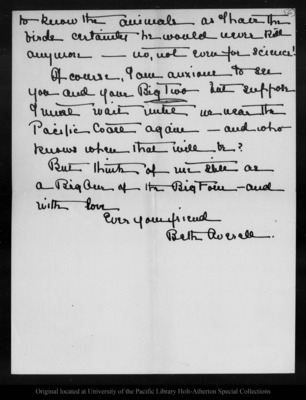 to know the animals as I hair the
birds certainly he would never kill
anymore — no, not even for science!
Of course, I am anxious to see
you and your Big Two but suppose
I must wait until we near the
Pacific Coast again — and who
knows when that will be?
But think of me still as
a Big One of the Big Four — and
with love
Ever your friend
Beth Averell.
Original located at University of the Pacific Library Holt-Atherton Special Collections